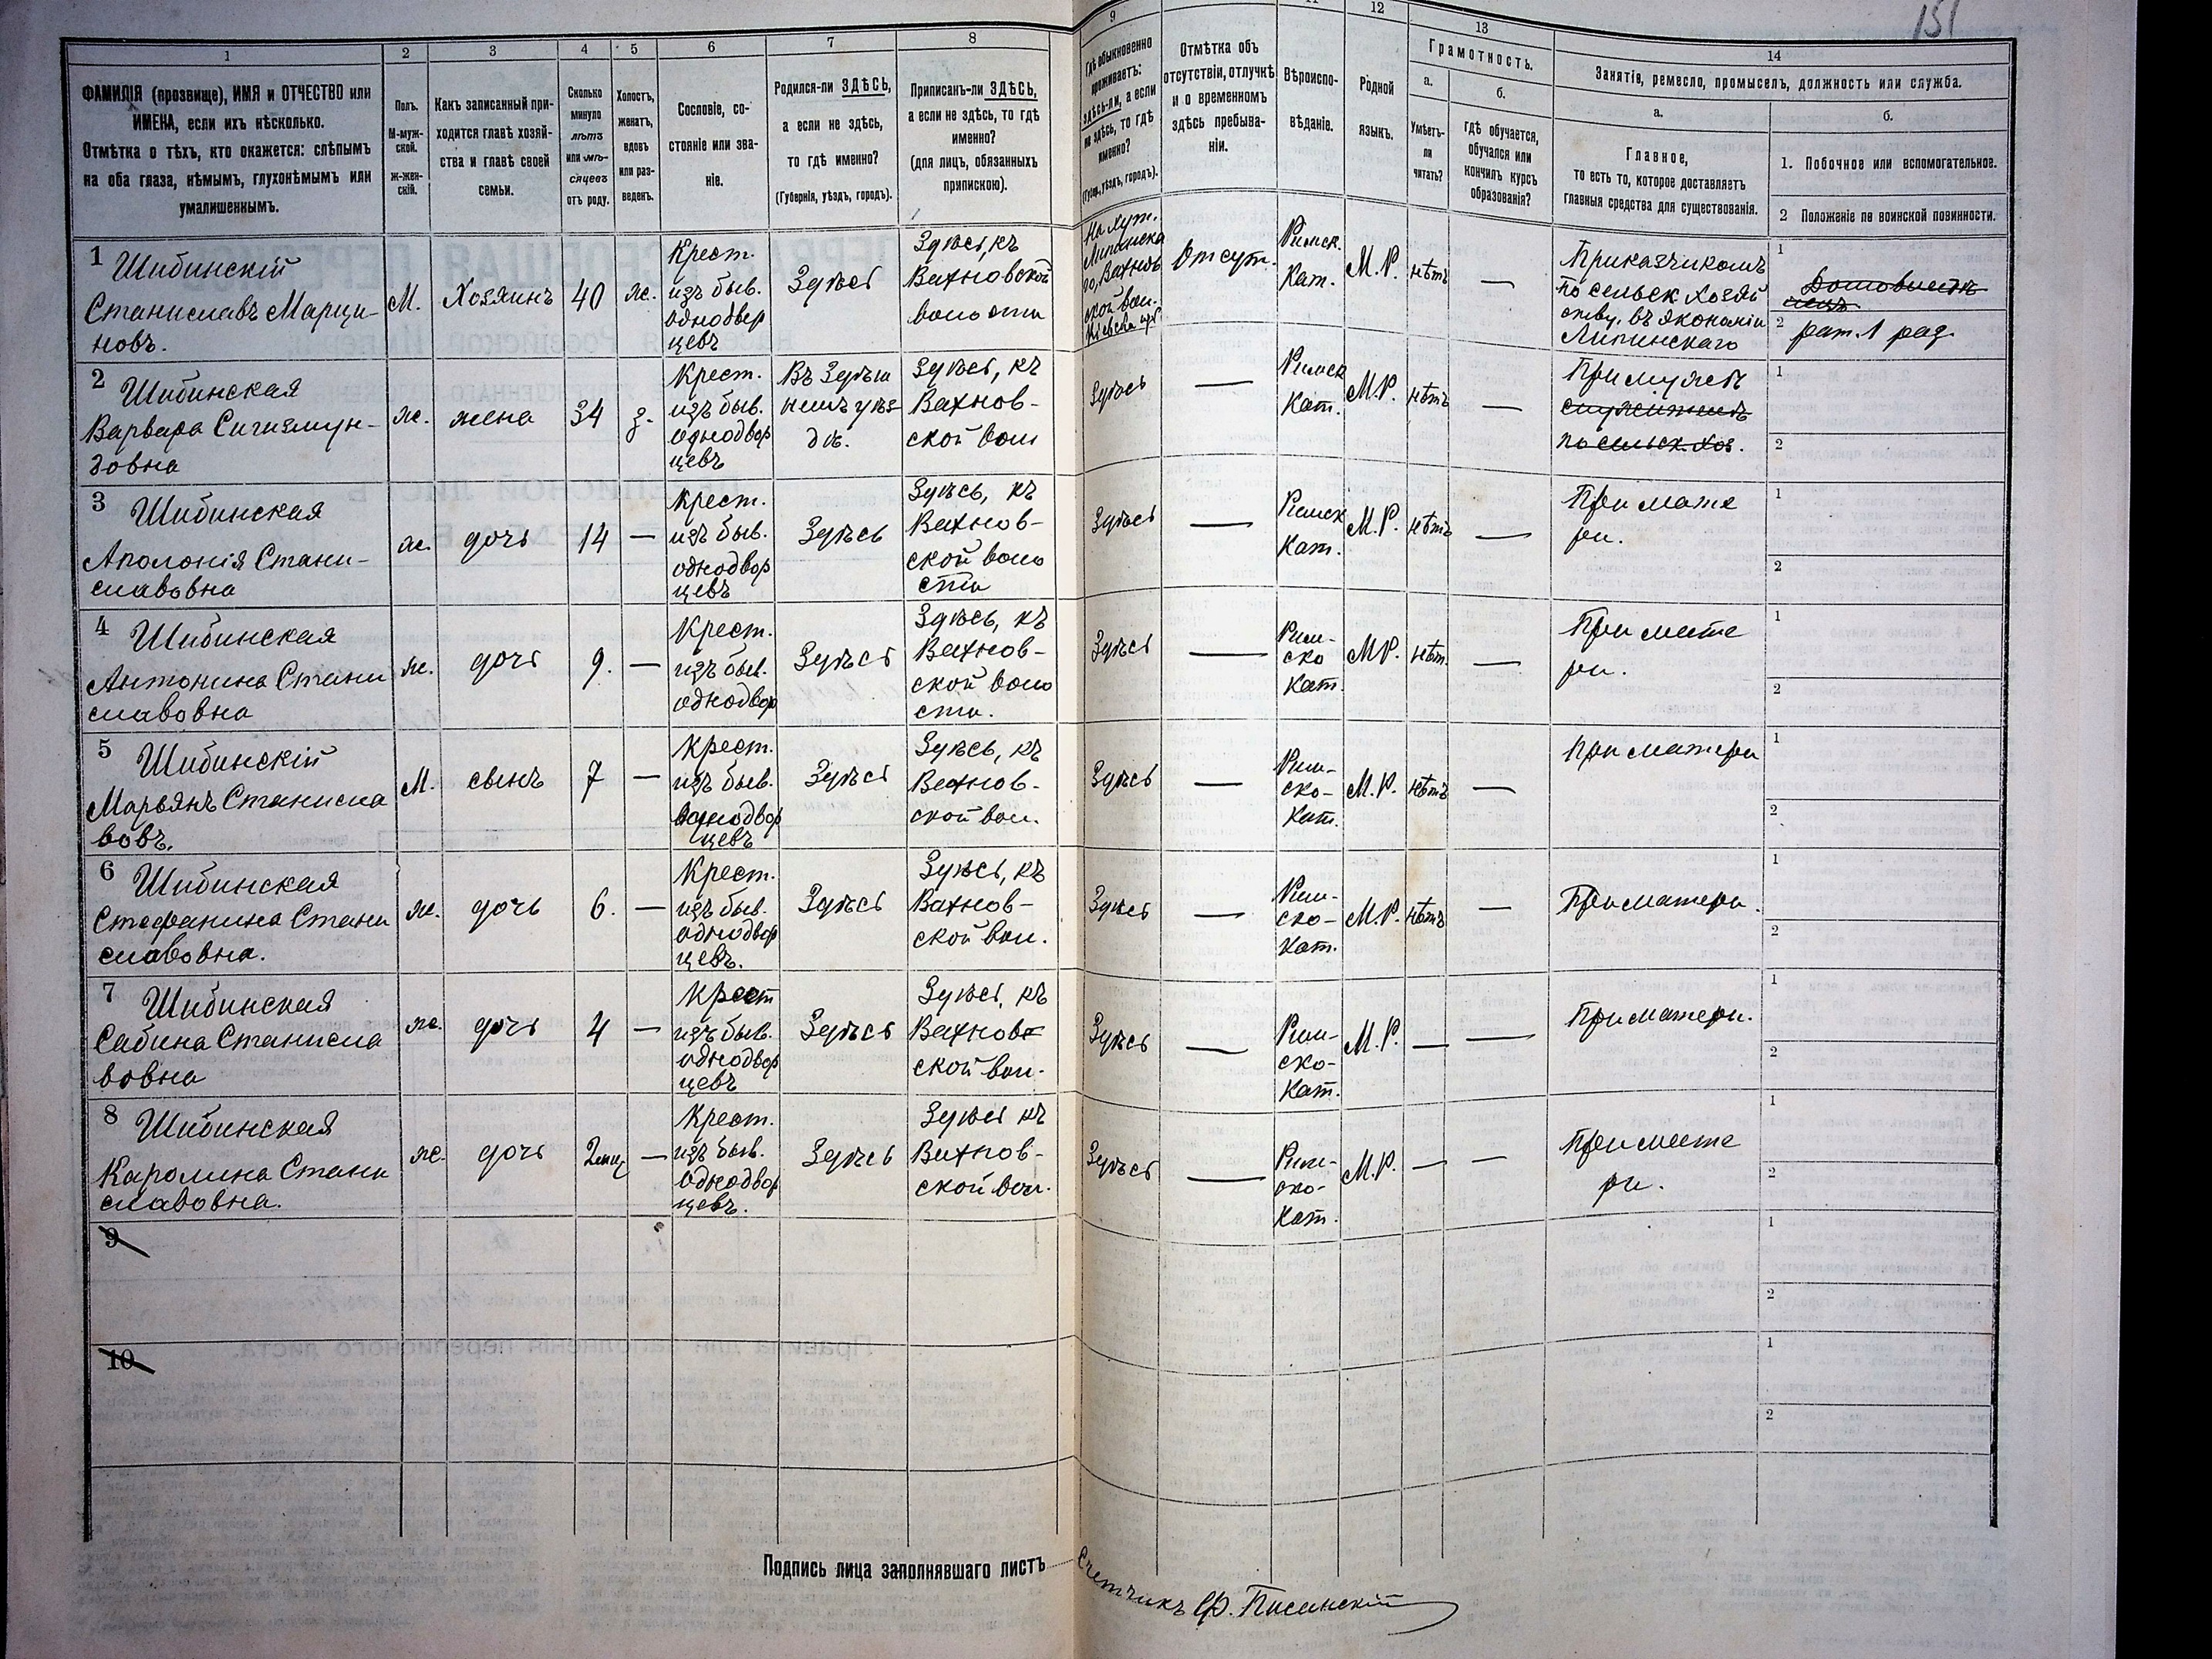 151
1
2
3
4
5
6
7
8
9
11
12
13
14
ФАМИЛІЯ (прозвище), ИМЯ и ОТЧЕСТВО или
ИМЕНА, если ихъ нѣсколько.
Отмѣтка о тѣхъ, кто окажется: слѣпымъ
на оба глаза, нѣмымъ, глухонѣмымъ или
умалишеннымъ.
Полъ.
М-муж-
ской.
Ж-жен-
скій.
Какъ записанный при-
ходится главѣ хозяй-
ства и главѣ своей
семьи.
Сколько
минуло
лѣтъ
или мѣ-
сяцевъ
отъ роду.
Холостъ,
женатъ,
вдовъ
или раз-
веденъ.
Сословіе, со-
стояніе или зва-
ніе.
Родился-ли ЗДѢСЬ,
а если не здѣсь,
то гдѣ именно?
(Губернія, уѣздъ, городъ).
Приписанъ-ли ЗДѢСЬ,
а если не здѣсь, то гдѣ
именно?
(для лицъ, обязанныхъ
припискою).
Гдѣ обыкновенно
проживаетъ:
ЗДѢСЬ-ли, а если
не здѣсь, то гдѣ
именно?
(Губер., уѣздъ, городъ).
Отмѣтка объ
отсутствіи, отлучкѣ
и о временномъ
здѣсь пребыва-
ніи.
Вѣроиспо-
вѣданіе.
Родной
языкъ.
Грамотность.
а.
Умѣетъ-
ли
читать?
б.
гдѣ обучается,
обучался или
кончилъ курсъ
образованія?
Занятіе, ремесло, промыселъ, должность или служба.
а.
Главное,
то есть то, которое доставляетъ
главныя средства для существованія.
б.
1. Побочное или вспомогательное.
2 Положеніе по воинской повинности.
1 Шибинскій
Станиславъ Марци-
новъ.
М.
Хозяинъ
40
ж.
Крест.
изъ быв.
однодвор
цевъ
Здѣсь
Здѣсь, къ
Вахновской
волости
На хут.
Липинска
го, Вахнов
ской вол.
Отсут.
Римск.
Кат.
М.Р.
нѣтъ
—
Приказчикомъ
по сельск хозяй
ству, въ экономіи
Липинскаго
1
2 рат. 1 раз.
2 Шибинская
Варвара Сигизмун-
довна
ж.
жена
34
з.
Крест.
изъ быв.
однодвор
цевъ
Въ Здѣш
немъ уѣз-
дѣ.
Здѣсь, къ
Вахнов-
ской вол
Здѣсь
—
Римск
Кат.
М.Р.
нѣтъ
—
При мужѣ
служитъ
по сельск. хоз.
1
2
3 Шибинская
Аполонія Стани-
славовна
ж.
дочь
14
—
Крест.
изъ быв.
однодвор
цевъ
Здѣсь
Здѣсь, къ
Вахнов-
ской воло
сти
Здѣсь
—
Римск
Кат.
М.Р.
нѣтъ
—
При мате
ри.
1
2
4 Шибинская
Антонина Стани
славовна
ж.
дочь
9.
—
Крест.
изъ быв.
однодвор
Здѣсь
Здѣсь, къ
Вахнов-
ской воло
сти.
Здѣсь
—
Рим-
ско
Кат.
МР.
нѣт.
—
При мате
ри.
1
2
5 Шибинскій
Марьянъ Станисла
вовъ.
М.
сынъ
7
—
Крест.
изъ быв.
однодвор
цевъ
Здѣсь
Здѣсь, къ
Вахнов-
ской вол.
Здѣсь
—
Рим-
ско-
Кат.
М.Р.
нѣтъ
—
При матери
1
2
6 Шибинская
Стефанина Стани
славовна.
ж.
дочь
6.
—
Крест.
изъ быв.
однодвор
цевъ.
Здѣсь
Здѣсь, къ
Вахнов-
ской вол.
Здѣсь
—
Рим-
ско-
Кат.
М.Р.
нѣтъ
—
При матери.
1
2
7 Шибинская
Сабина Станисла
вовна
ж.
дочь
4
—
Крест
изъ быв.
однодвор
цевъ
Здѣсь
Здѣсь, къ
Вахнов-
ской вол.
Здѣсь
—
Рим-
ско-
Кат.
М.Р.
—
—
При матери.
1
2
8 Шибинская
Каролина Стани
славовна.
ж.
дочь
2мѣс
—
Крест.
изъ быв.
однодвор
цевъ.
Здѣсь
Здѣсь къ
Вахнов-
ской вол.
Здѣсь
—
Рим-
ско-
Кат.
М.Р.
—
—
При мате
ри.
1
2
9
1
2
10
1
2
Подпись лица заполнявшаго листъ
Счетчикъ Ф. Писанскій